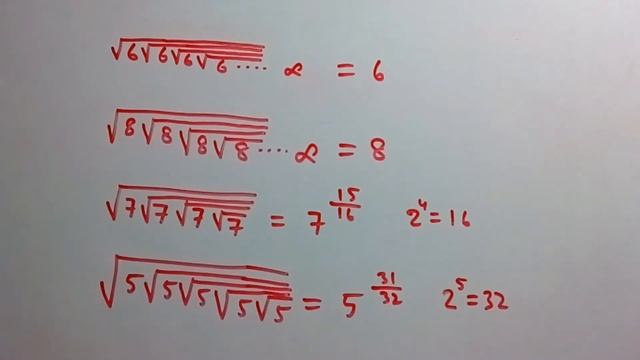 √6√6√6√6.... ∞ = 6
√8√8√8√8.... ∞ = 8
√7√7√7√7 = 7^(15/16) 2^4=16
√5√5√5√5√5 = 5^(31/32) 2^5=32